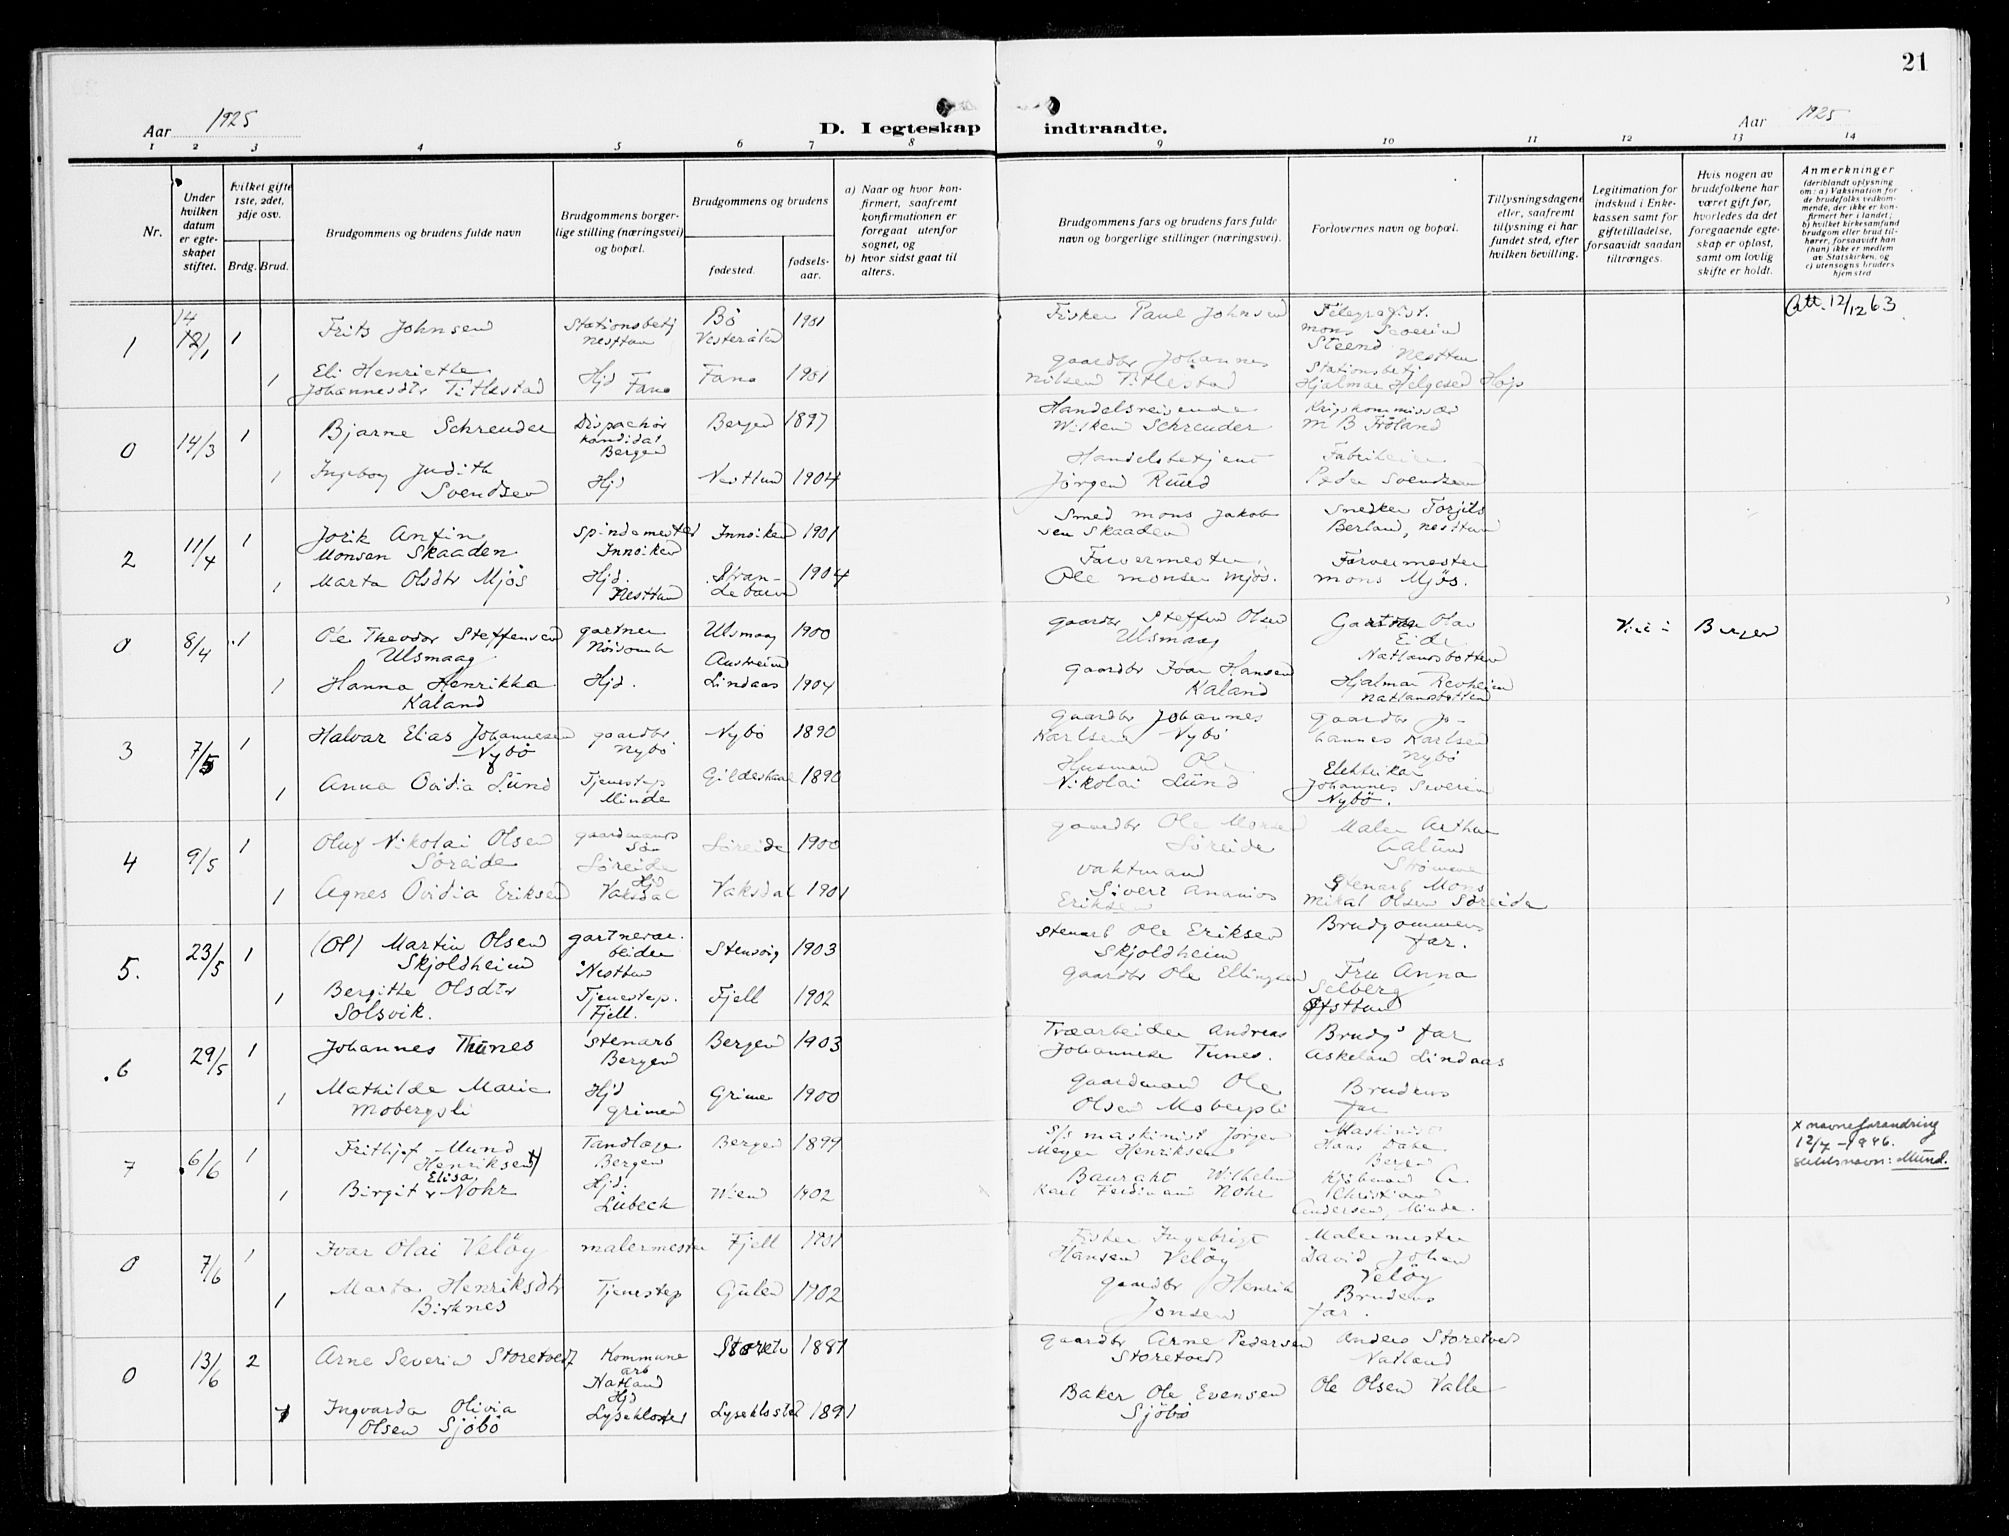 21
Aar 1925
D. I egteskap indtraadte.
Aar 1925
1 2 3 4 5 6 7 8 9 10 11 12 13 14
Nr.
Under hvilken datum er egteskapet stiftet.
hvilket gifte 1ste, 2det, 3dje osv.
Brdg. Brud.
Brudgommens og brudens fulde navn
Brudgommens borgerlige stilling (næringsvei) og bopæl.
Brudgommens og brudens
fødested.
fødselsaar.
a) Naar og hvor konfirmert, saafremt konfirmationen er foregaat utenfor sognet, og
b) hvor sidst gaat til alters.
Brudgommens fars og brudens fars fulde navn og borgerlige stillinger (næringsvei).
Forlovernes navn og bopæl.
Tillysningsdagene eller, saafremt tillysning ei har fundet sted, efter hvilken bevilling.
Legitimation for indskud i Enkekassen samt for giftetilladelse, forsaavidt saadan tiltrænges.
Hvis nogen av brudefolkene har været gift før, hvorledes da det foregaaende egteskap er opløst, samt om lovlig skifte er holdt.
Anmerkninger
(deriblandt oplysning om: a) Vaksination for de brudefolks vedkommende, der ikke er konfirmert her i landet;
b) hvilket kirkesamfund brudgom eller brud tilhører, forsaavidt han (hun) ikke er medlem av Statskirken, og
c) utensogns bruders hjemsted
1 14 1 Frits Johnsen Stationsbetj Nesttun Bö Vesterålen 1901 Fisker Paul Johnsen Telegrafist. Mons Severin Steend Nesttun Att. 12/12 63
1 Eli Henriette Johannesdtr Titlestad Hjd Fana Fana 1901 gaardbr Johannes Nilsen Titlestad Stationsbetj Hjalmar Helgesen Hop
0 14/3 1 Bjarne Schreuder Dispachör kandidat Bergen Bergen 1897 Handelsreisende Wilken Schreuder Krigskommissær M B Fröland
1 Ingeborg Judith Svendsen Hjd Nesttun 1904 Handelsbetjent Jörgen Ruud Peder Svendsen
2 11/4 1 Jorik Anfin Monsen Skaaden Spindemester Innviken Innviken 1901 Smed Mons Jakobsen Skaaden Snedker Torjils Berland, Nesttun
1 Marta Olsdtr Mjös Hjd. Nesttun Stranlebarm 1904 Farvermester Ole Monsen Mjös. Farvermester Mons Mjös.
0 8/4 1 Ole Theodor Steffensen Ulsmaag gartner Ulsmaag 1900 gaardbr Steffen Olsen Ulsmaag Olav Eide Natlandsbotten Viet i Bergen
1 Hanna Henrikka Kaland Hjd. Austreim Lindaas 1904 gaardbr Ivar Hansen Kaland Hjalmar Revheim Natlandsbotten
3 7/5 1 Halvar Elias Johannesen Nybö gaardbr Nybö Nybö 1890 Gaardbr Johannes Karlsen Nybö gaardbr Johannes Karlsen Nybö
1 Anna Ovidia Lund Tjenestep Minde Gildeskaal 1890 Husmand Ole Nikolai Lund Elektriker Johannes Severin Nybö.
4 9/5 1 Oluf Nikolai Olsen Søreide gaardmanns Søn Søreide Søreide 1900 gaardbr Ole Monsen Søreide Maler Arthur
1 Agnes Ovidia Eriksen Hjd Vaksdal Vaksdal 1901 vaktmand Sivert Ananias Eriksen Stenarb Mons Mikal Olsen Søreide
5. 23/5 1 (Ol) Martin Olsen Skjoldheim gartnerarbeider Nesttun Stensvig 1903 Stenarb Ole Eriksen Skjoldheim Brudgommens far.
1 Bergitte Olsdtr Solsvik. Tjenestep. Fjell. Fjell 1902 gaardbr Ole Ellingsen Fru Anna Selberg
6 29/5 1 Johannes Tunes Stenarb Bergen Bergen 1903 Træarbeider Andreas Johannesen Tunes. Brudg's far Askeland Lindaas
1 Mathilde Marie Mobergsli Hjd Grimen Grimen 1900 gaardmand Ole Olsen Mobergsli Brudens far
7 6/6 1 Frithjof Mund Henriksen x) Tandlæge Bergen Bergen 1899 S/s maskinist Jörgen Meyer Henriksen Maskinist Bergen x navneforandring 12/7-1946. slektsnavn: Mund.
1 Birgit Elisa Nohr Hjd. Lübeck Wien 1902 Baurakt Wilhelm Karl Ferdinand Nohr Kjöbmand C. Christian Andersen, Minde.
0 7/6 1 Ivar Olai Veløy malermester Fjell 1901 Fisker Ingebrigt Hansen Veløy Malermester David Johan Veløy
1 Marta Henriksdtr Birknes Tjenestep Gulen 1902 gaardbr Henrik Jonsen Brudens far.
0 13/6 2 Arne Severin Storetvedt Kommunearb Natland Storetv 1887 gaardbr Arne Pedersen Storetvedt Anders Storetvedt Natland
1 Ingvarda Olivia Olsen Sjöbö Hjd Lyseklostet Lyseklostet 1891 Baker Ole Evensen Sjöbö Ole Olsen Valle